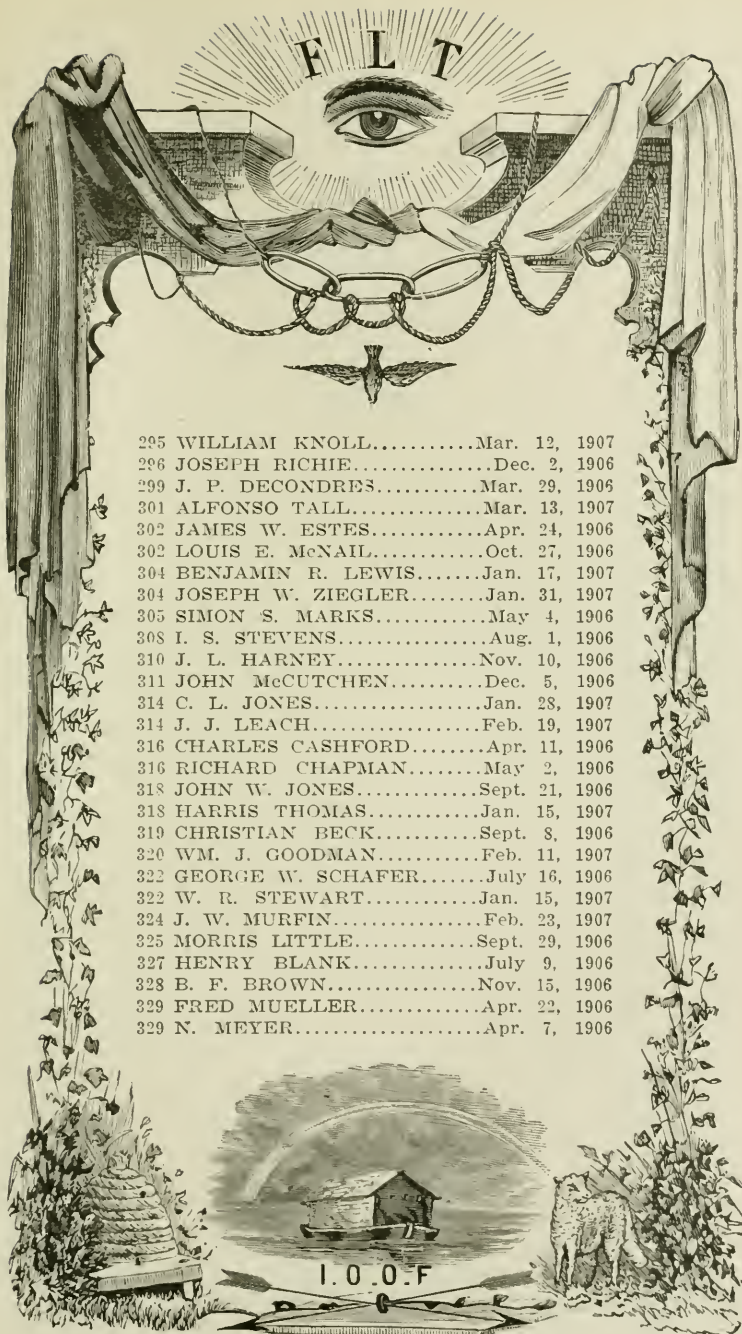 F L T
295 WILLIAM KNOLL...........Mar. 12, 1907
296 JOSEPH RICHIE..............Dec. 2, 1906
299 J. P. DECONDRES..........Mar. 29, 1906
301 ALFONSO TALL............Mar. 13, 1907
302 JAMES W. ESTES..........Apr. 24, 1906
302 LOUIS E. McNAIL..........Oct. 27, 1906
304 BENJAMIN R. LEWIS......Jan. 17, 1907
304 JOSEPH W. ZIEGLER......Jan. 31, 1907
305 SIMON S. MARKS..........May 4, 1906
308 I. S. STEVENS..............Aug. 1, 1906
310 J. L. HARNEY..............Nov. 10, 1906
311 JOHN McCUTCHEN.........Dec. 5, 1906
314 C. L. JONES................Jan. 28, 1907
314 J. J. LEACH................Feb. 19, 1907
316 CHARLES CASHFORD.......Apr. 11, 1906
316 RICHARD CHAPMAN........May 2, 1906
318 JOHN W. JONES..........Sept. 21, 1906
318 HARRIS THOMAS..........Jan. 15, 1907
319 CHRISTIAN BECK.........Sept. 8, 1906
320 WM. J. GOODMAN.........Feb. 11, 1907
322 GEORGE W. SCHAFER.....July 16, 1906
322 W. R. STEWART..........Jan. 15, 1907
324 J. W. MURFIN.............Feb. 23, 1907
325 MORRIS LITTLE...........Sept. 29, 1906
327 HENRY BLANK.............July 9, 1906
328 B. F. BROWN..............Nov. 15, 1906
329 FRED MUELLER...........Apr. 22, 1906
329 N. MEYER..................Apr. 7, 1906
I.O.O.F